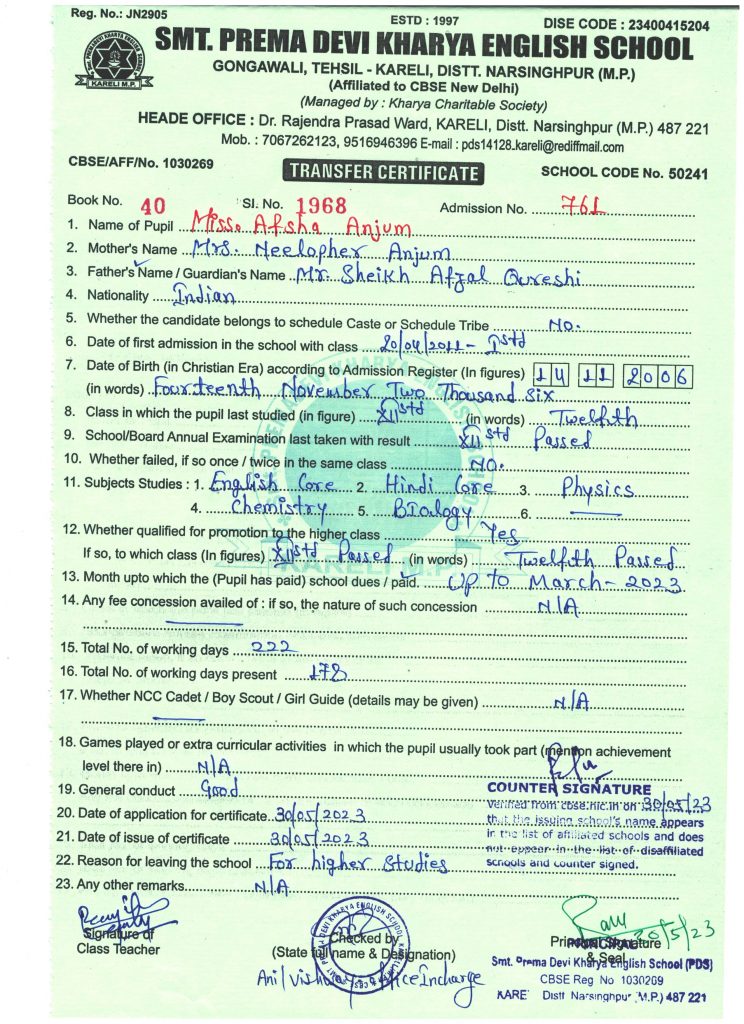 Reg. No.: JN2905
ESTD : 1997
DISE CODE : 23400415204
SMT. PREMA DEVI KHARYA ENGLISH SCHOOL
KARELI M.P.
GONGAWALI, TEHSIL - KARELI, DISTT. NARSINGHPUR (M.P.)
(Affiliated to CBSE New Delhi)
(Managed by : Kharya Charitable Society)
HEAD OFFICE : Dr. Rajendra Prasad Ward, KARELI, Distt. Narsinghpur (M.P.) 487 221
Mob. : 7067262123, 9516946396 E-mail : pds14128.kareli@rediffmail.com
CBSE/AFF/No. 1030269
TRANSFER CERTIFICATE
SCHOOL CODE No. 50241
Book No. 40 Sl. No. 1968 Admission No. 761
1. Name of Pupil Miss. Afsha Anjum
2. Mother's Name Mrs. Neelopher Anjum
3. Father's Name / Guardian's Name Mr. Sheikh Afzal Qureshi
4. Nationality Indian
5. Whether the candidate belongs to schedule Caste or Schedule Tribe No.
6. Date of first admission in the school with class 20/04/2011 - Istd
7. Date of Birth (in Christian Era) according to Admission Register (In figures) 14 11 2006
(in words) Fourteenth November Two Thousand Six
8. Class in which the pupil last studied (in figure) XII std (in words) Twelfth
9. School/Board Annual Examination last taken with result XII std Passed
10. Whether failed, if so once / twice in the same class No.
11. Subjects Studies : 1. English Core 2. Hindi Core 3. Physics
4. Chemistry 5. Biology 6.
12. Whether qualified for promotion to the higher class Yes
If so, to which class (In figures) XII std Passed (in words) Twelfth Passed
13. Month upto which the (Pupil has paid) school dues / paid. Up to March - 2023
14. Any fee concession availed of : if so, the nature of such concession N/A
15. Total No. of working days 222
16. Total No. of working days present 178
17. Whether NCC Cadet / Boy Scout / Girl Guide (details may be given) N/A
18. Games played or extra curricular activities in which the pupil usually took part (mention achievement
level there in) N/A
19. General conduct Good
20. Date of application for certificate 30/05/2023
21. Date of issue of certificate 30/05/2023
22. Reason for leaving the school For higher Studies
23. Any other remarks N/A
COUNTER SIGNATURE
Verified from cbse.nic.in on 30/05/23
that the issuing school's name appears
in the list of affiliated schools and does
not appear in the list of disaffiliated
schools and counter signed.
Signature of
Class Teacher
Checked by
(State full name & Designation)
Office Incharge
30/5/23
Principal Signature
& Seal
PRINCIPAL
Smt. Prema Devi Kharya English School (PDS)
CBSE Reg No 1030269
KARE Distt Narsinghpur (M.P.) 487 221